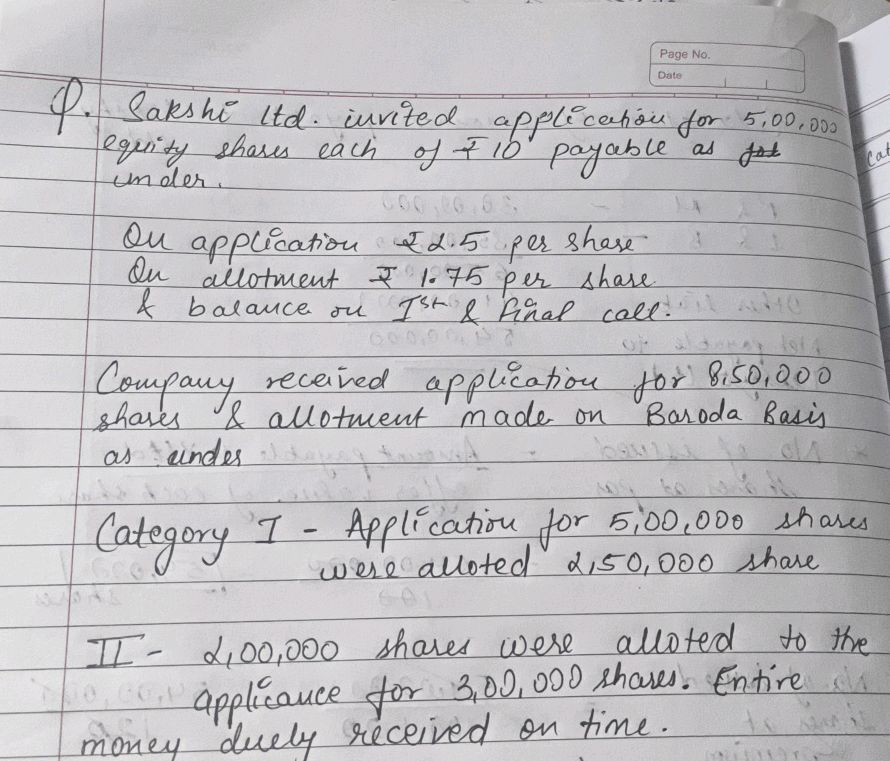 Page No.
Date
Q. Sakshi Ltd. invited application for 5,00,000
equity shares each of ₹ 10 payable as
under.
On application ₹ 2.5 per share
On allotment ₹ 1.75 per share
& balance on Ist & final call.
Company received application for 8,50,000
shares & allotment made on Baroda Basis
as under
Category I - Application for 5,00,000 shares
were alloted 2,50,000 share
II - 2,00,000 shares were alloted to the
applicance for 3,00,000 shares. Entire
money duely received on time.